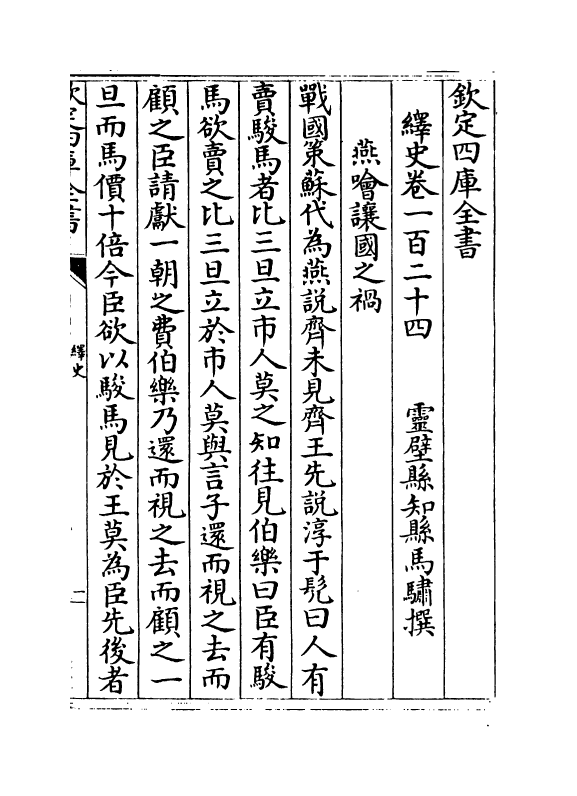 欽定四庫全書
繹史卷一百二十四　　靈壁縣知縣馬驌撰
燕噲讓國之禍
戰國策蘇代為燕説齊未見齊王先説淳于髠曰人有
賣駿馬者比三旦立市人莫之知往見伯樂曰臣有駿
馬欲賣之比三旦立於市人莫與言子還而視之去而
顧之臣請獻一朝之費伯樂乃還而視之去而顧之一
旦而馬價十倍今臣欲以駿馬見於王莫為臣先後者
欽定四庫全書
繹史
二